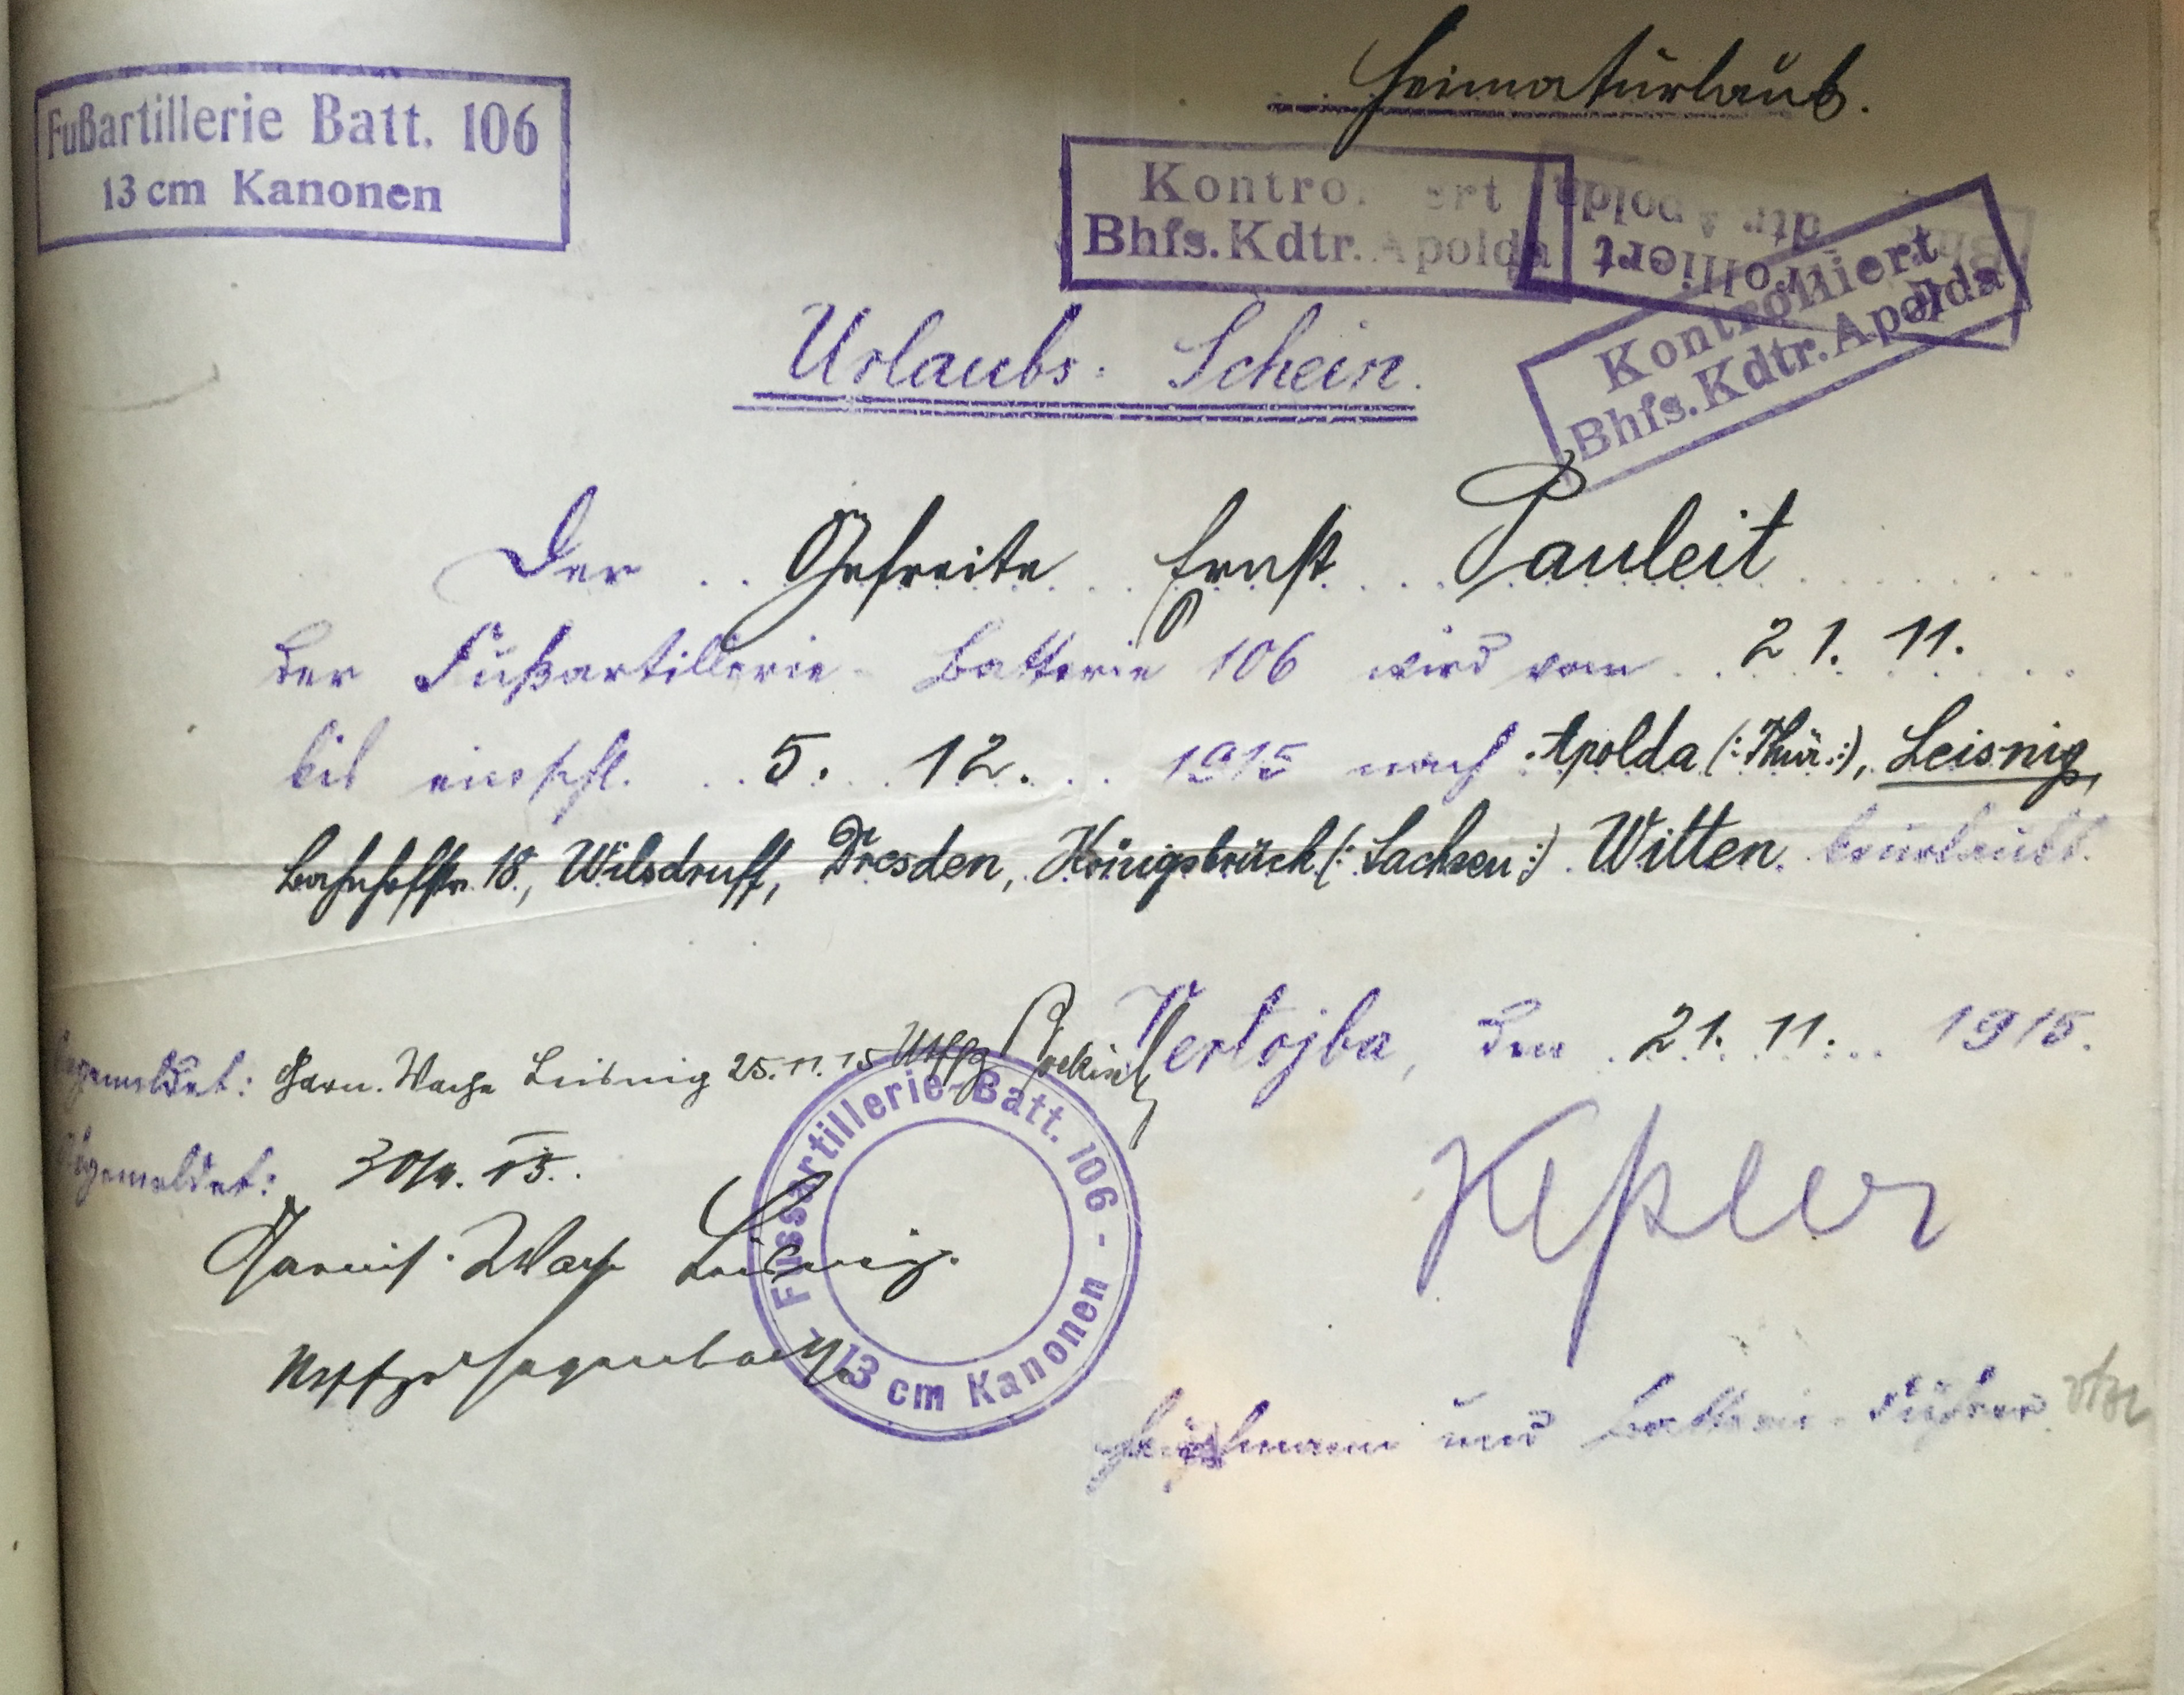 Heimaturlaub.
Fußartillerie Batt. 106
13 cm Kanonen
Kontro ert
Bhfs. Kdtr. Apolda
Kontrolliert
Bhfs. Kdtr. Apolda
Urlaubs- Schein.
Der Gefreite Ernst Pauleit
der Fußartillerie- Batterie 106 wird vom 21. 11.
bis einschl. 5. 12. 1915 nach Apolda (: Thür :), Leisnig,
Bahnhofstr. 18, Wilsdruff, Dresden, Königsbrück (: Sachsen :) Witten beurlaubt.
Vertojba, den 21. 11. 1915.
gemeldet: Garn. Wache Leisnig 25. 11. 15 Utffz
gemeldet: 30/11. 15.
Garnis. Wache Leisnig.
Fussartillerie-Batt. 106 -
13 cm Kanonen -
Kepler
Hauptmann und Batterie-Führer